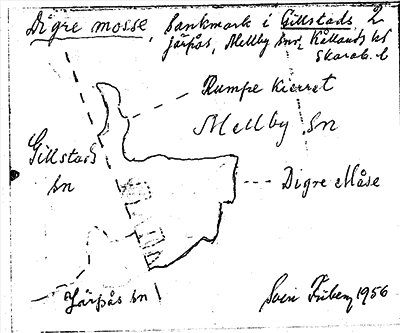 Digre mosse, sankmark i Gillstads 2
Järpås, Mellby snr, Kållands hd
Skarab. l
Rumpe kierret
Mellby sn
Gillstads
sn
Digre Måse
Järpås sn
1956